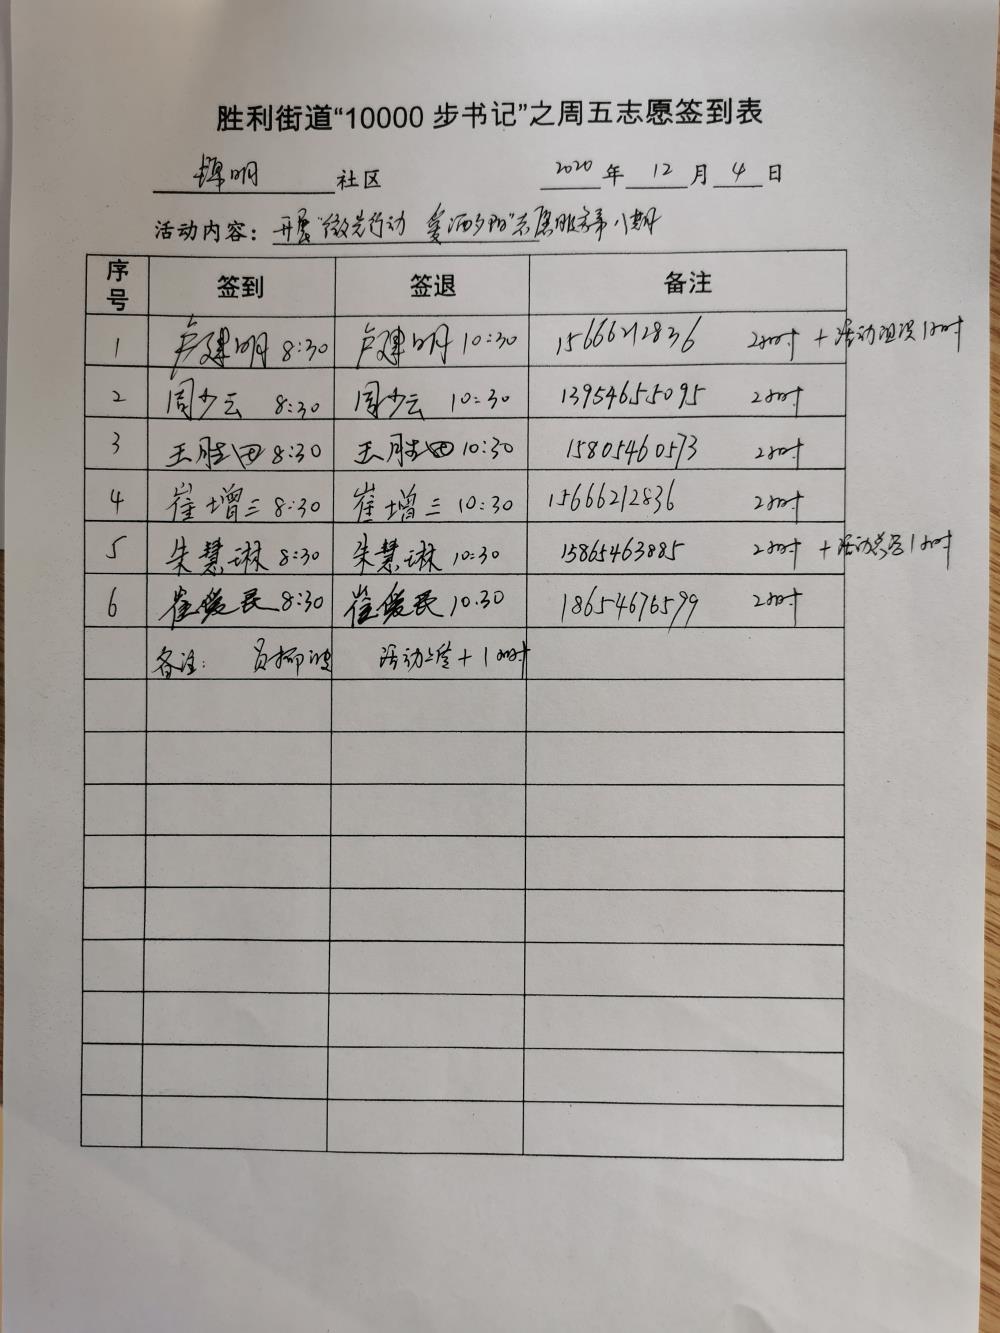 胜利街道“10000 步书记”之周五志愿签到表
锦明 社区 2020 年 12 月 4 日
活动内容：开展“微尘行动 爱洒夕阳”志愿服务第八期
序号 签到 签退 备注
1 卢建明 8:30 卢建明 10:30 15666212836 2小时 +活动组织1小时
2 周少云 8:30 周少云 10:30 13954655095 2小时
3 王胜田 8:30 王胜田 10:30 15805460573 2小时
4 崔增三 8:30 崔增三 10:30 15666212836 2小时
5 朱慧琳 8:30 朱慧琳 10:30 15865463885 2小时 +活动总结1小时
6 崔爱民 8:30 崔爱民 10:30 18654676599 2小时
备注： 活动上传+1小时